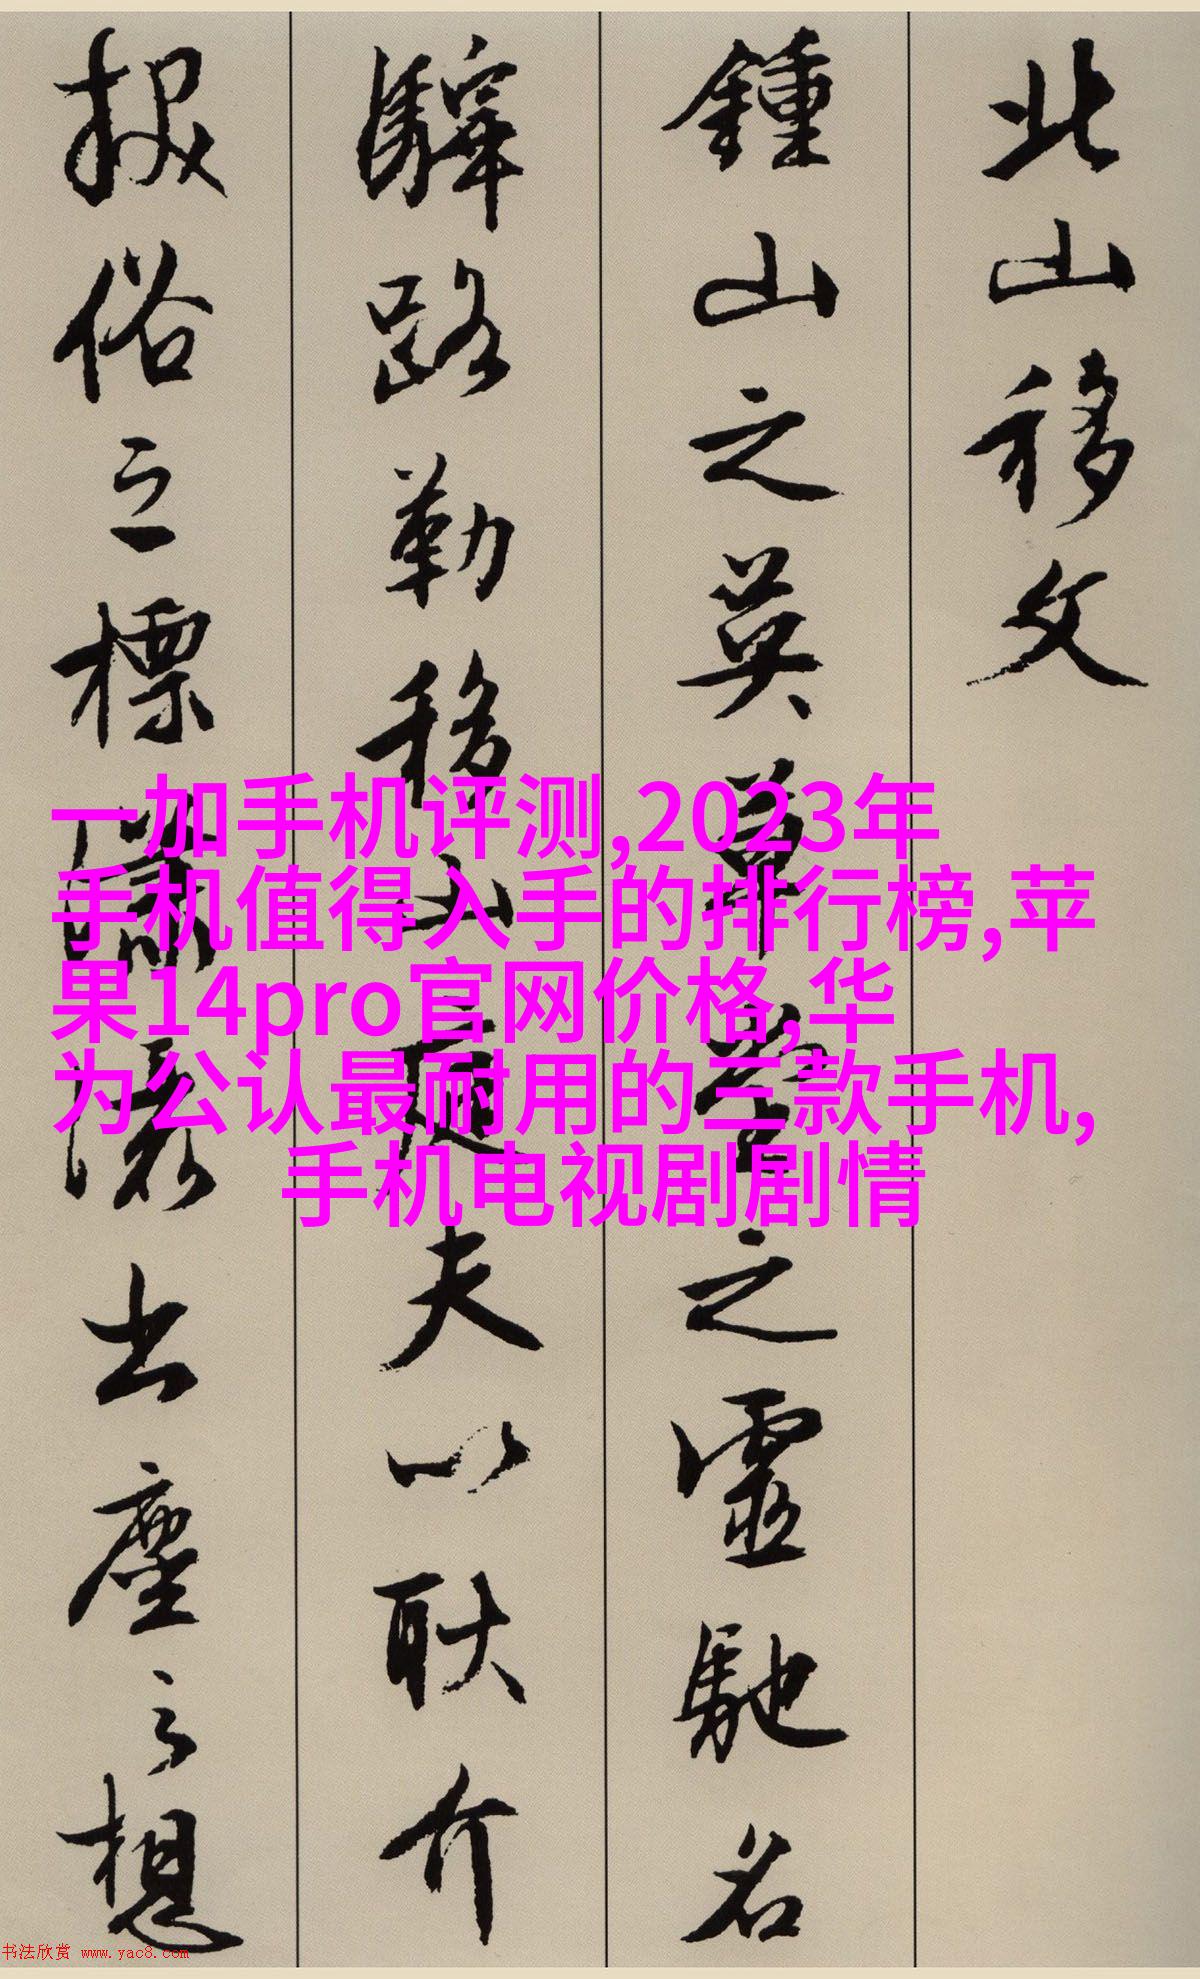 北山移文
鍾山之英草堂之靈馳名
驛路勒移山庭夫以耿介
拔俗之標瀟灑出塵之想
一加手机评测,2023年
手机值得入手的排行榜,苹
果14pro官网价格,华
为公认最耐用的三款手机,
手机电视剧剧情
书法欣赏 www.yac8.com